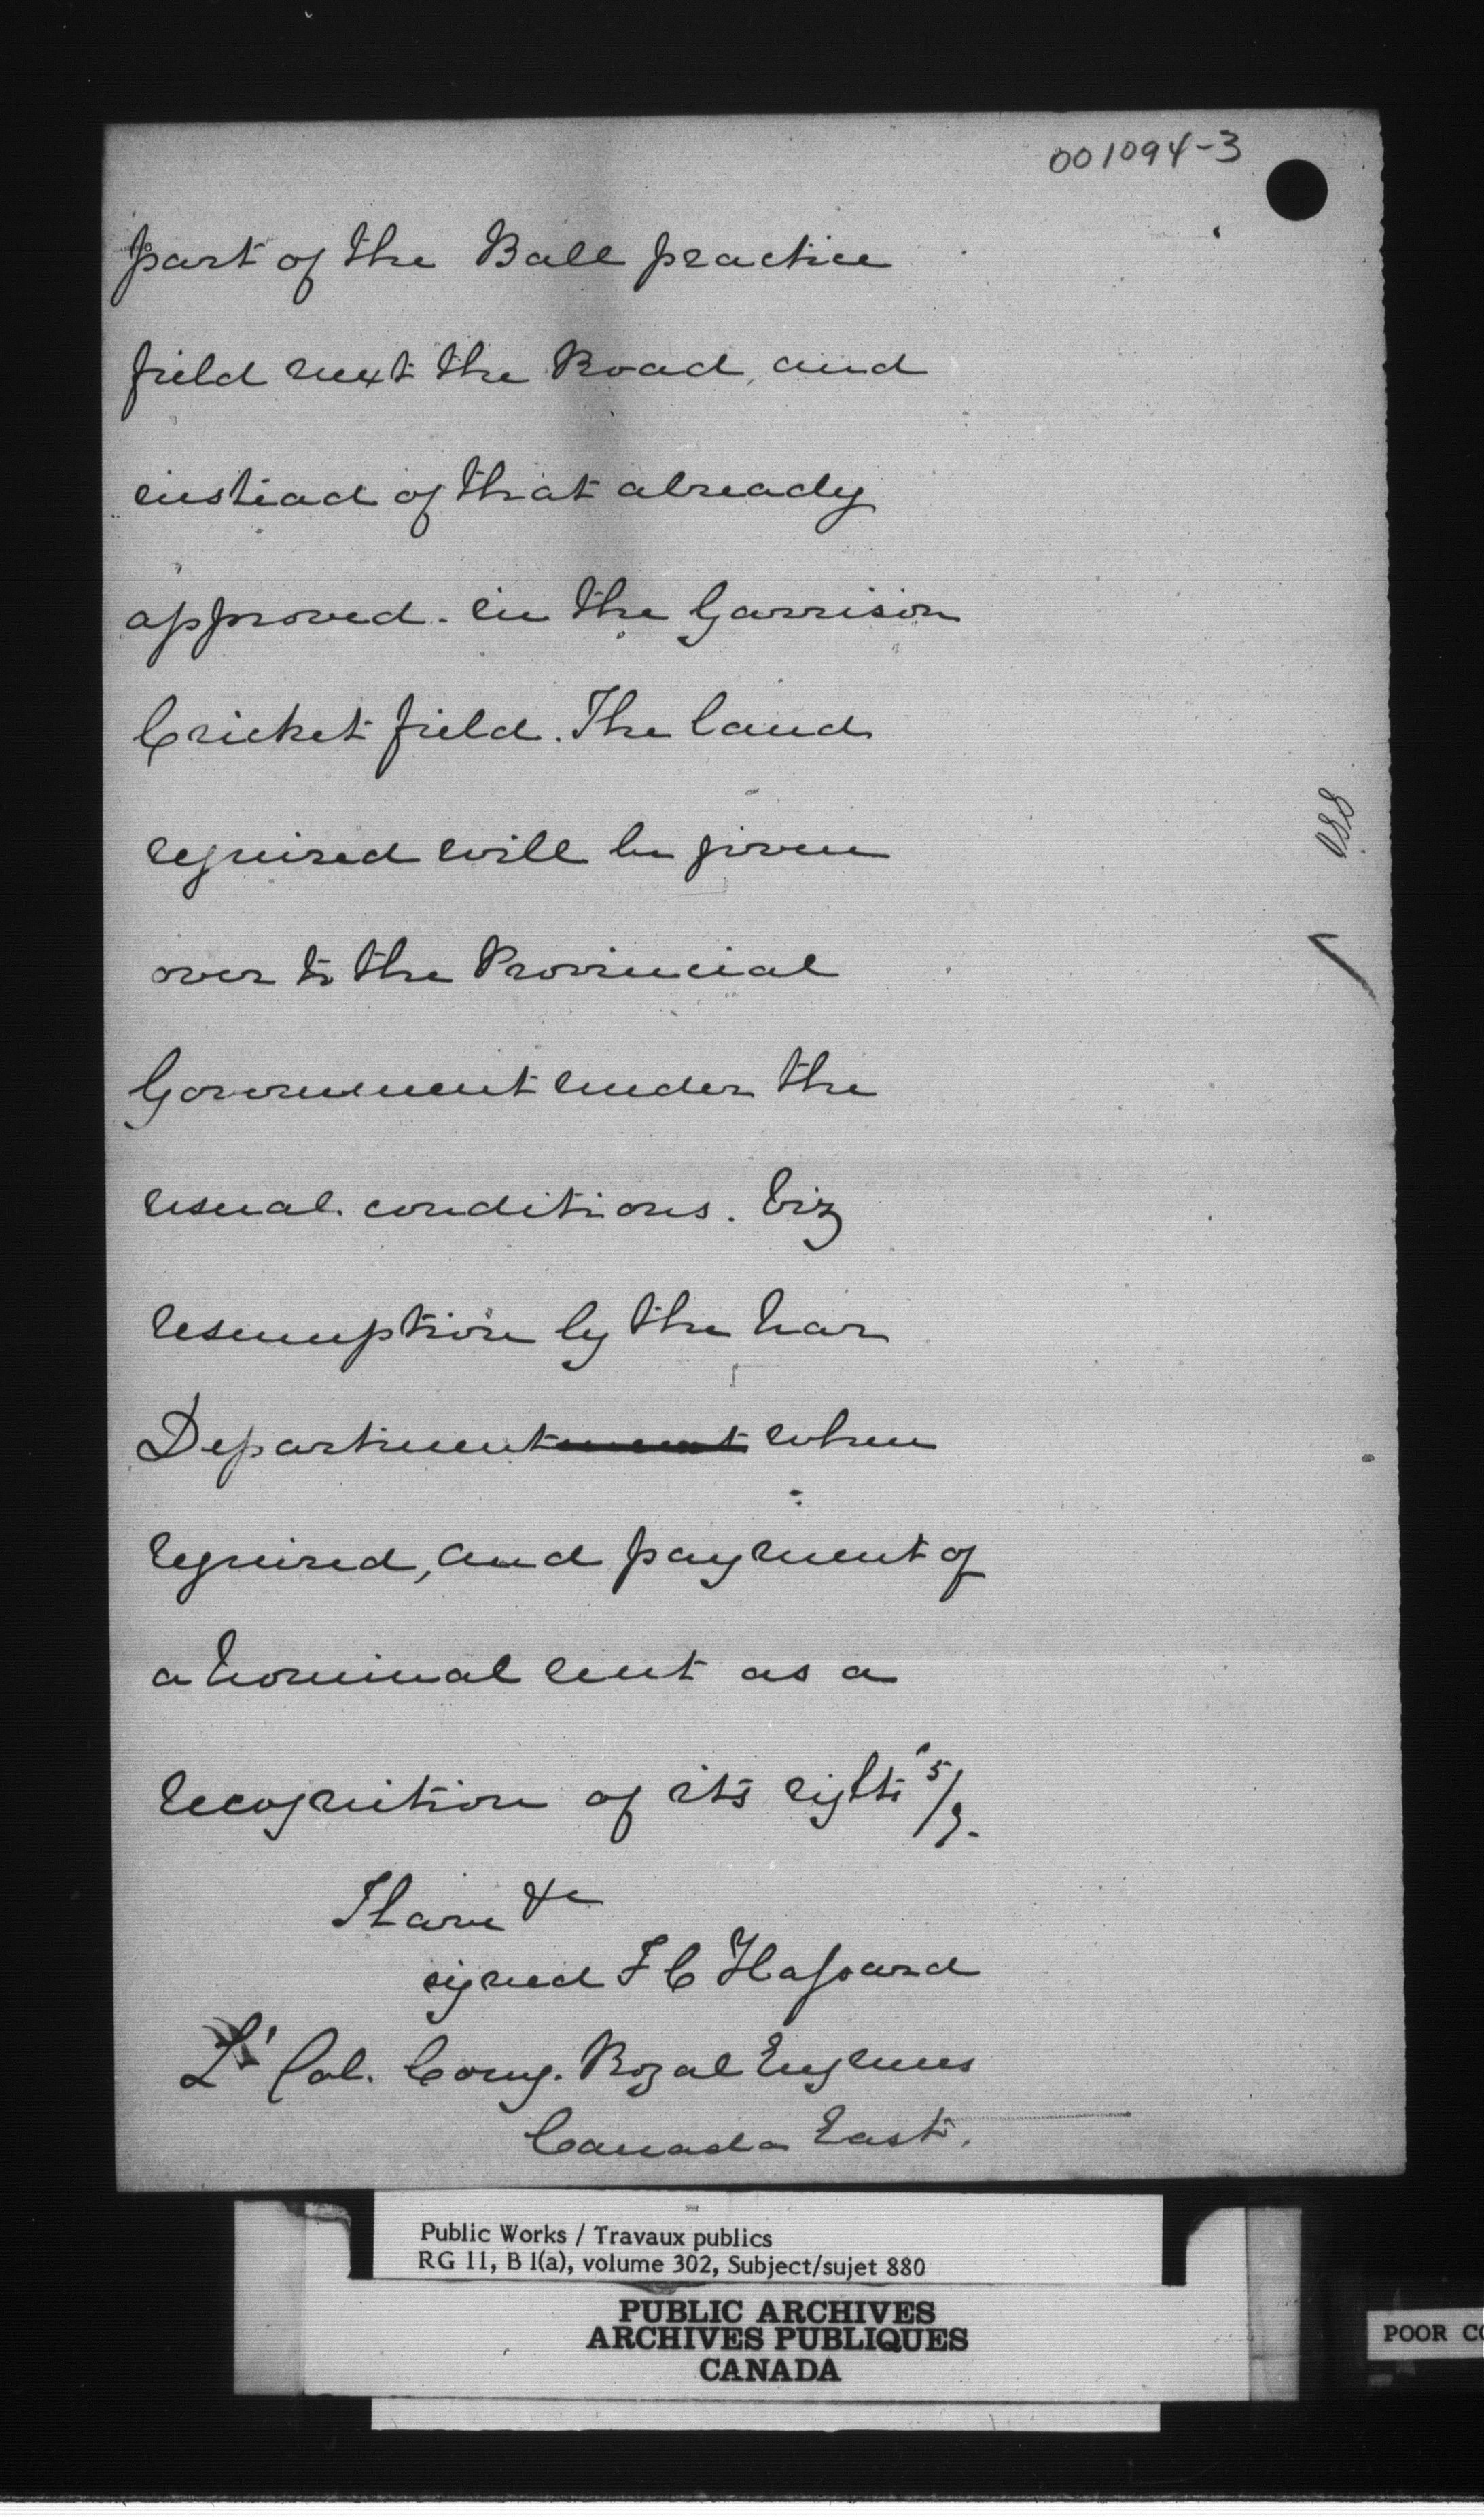 001094-3
part of the Ball practice
field next the Road, and
instead of that already
approved. in the Garrison
Cricket field. The land
required will be given
over to the Provincial
Government under the
usual conditions. Viz
resumption by the War
Department when
required, and payment of
a nominal rent as a
recognition of its rights 5/.
I have &c
signed F C Hassard
Lt Col. Comg. Royal Engineers
Canada East.
880
Public Works / Travaux publics
RG 11, B 1(a), volume 302, Subject/sujet 880
PUBLIC ARCHIVES
ARCHIVES PUBLIQUES
CANADA
POOR CO